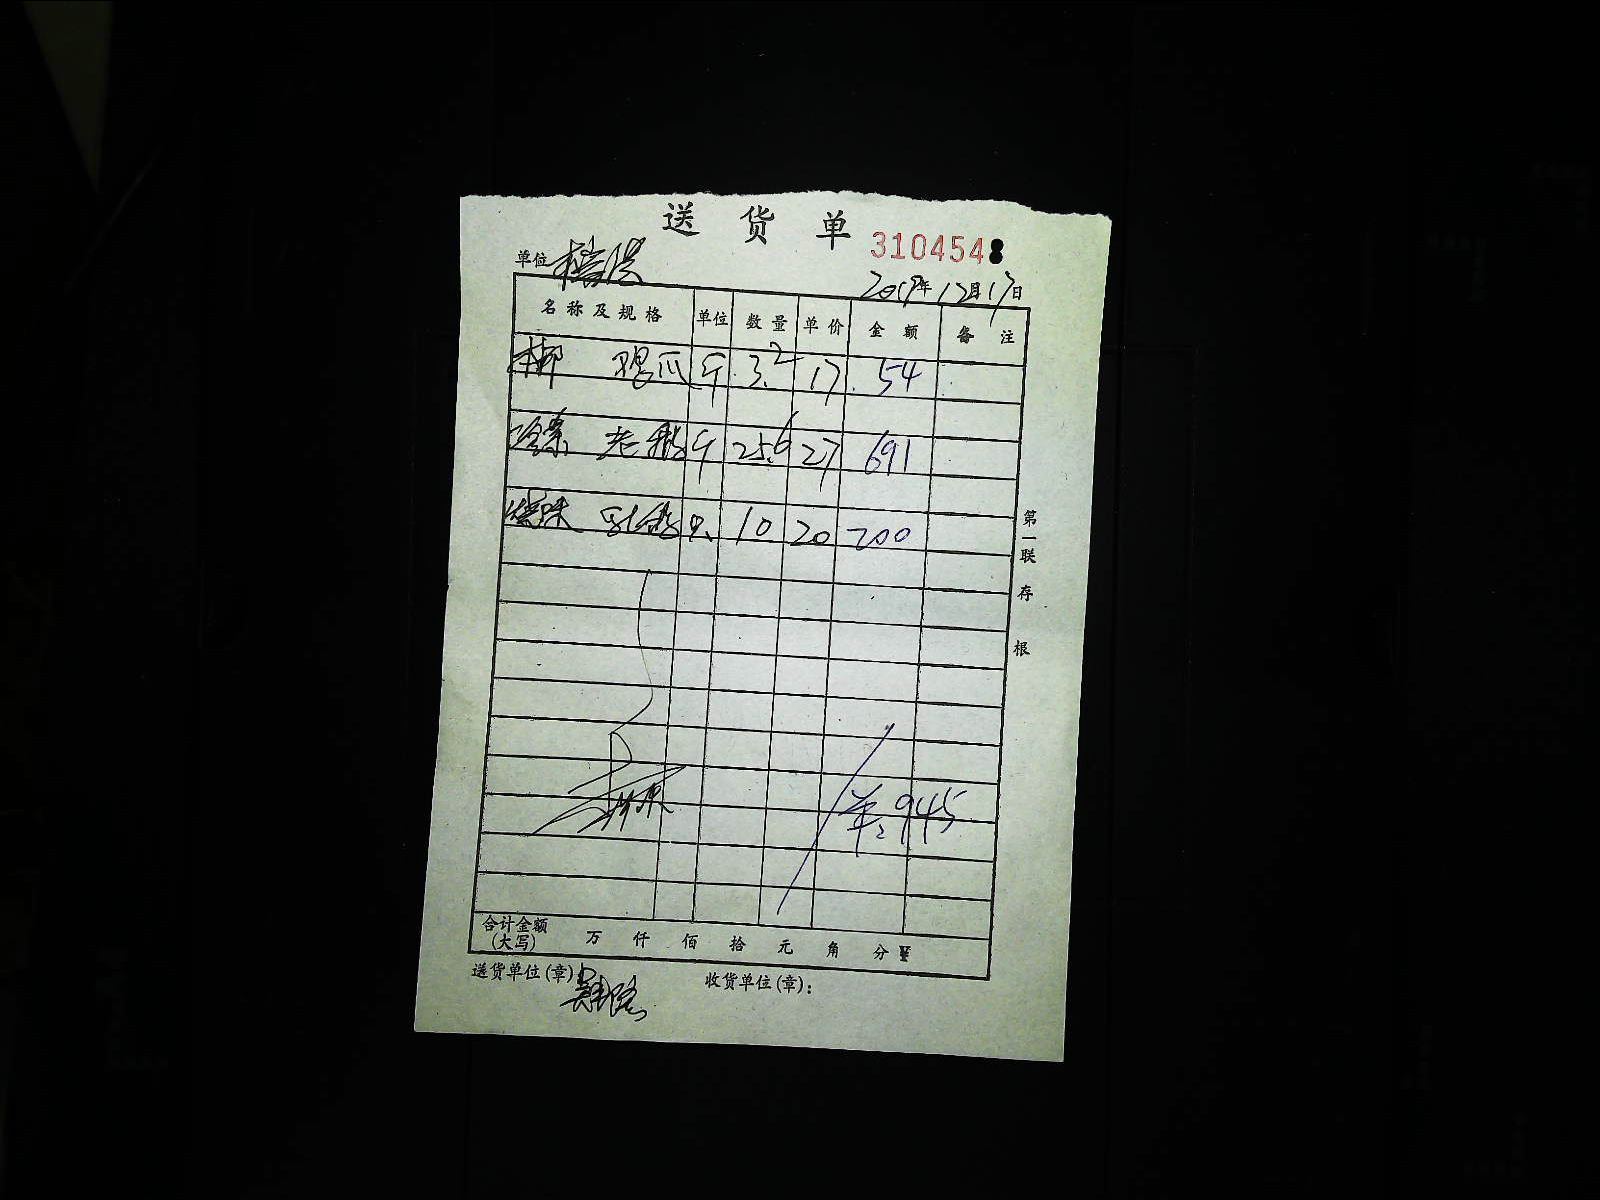 送货单
3104548
单位
2019年12月17日
名称及规格 单位 数量 单价 金额 备注
斤 3.2 17 54
老鹅 斤 25.6 27 691
烧味 乳鸽 只 10 20 200
第一联 存根
单:945
合计金额(大写) 万 仟 佰 拾 元 角 分
送货单位(章)
收货单位(章):